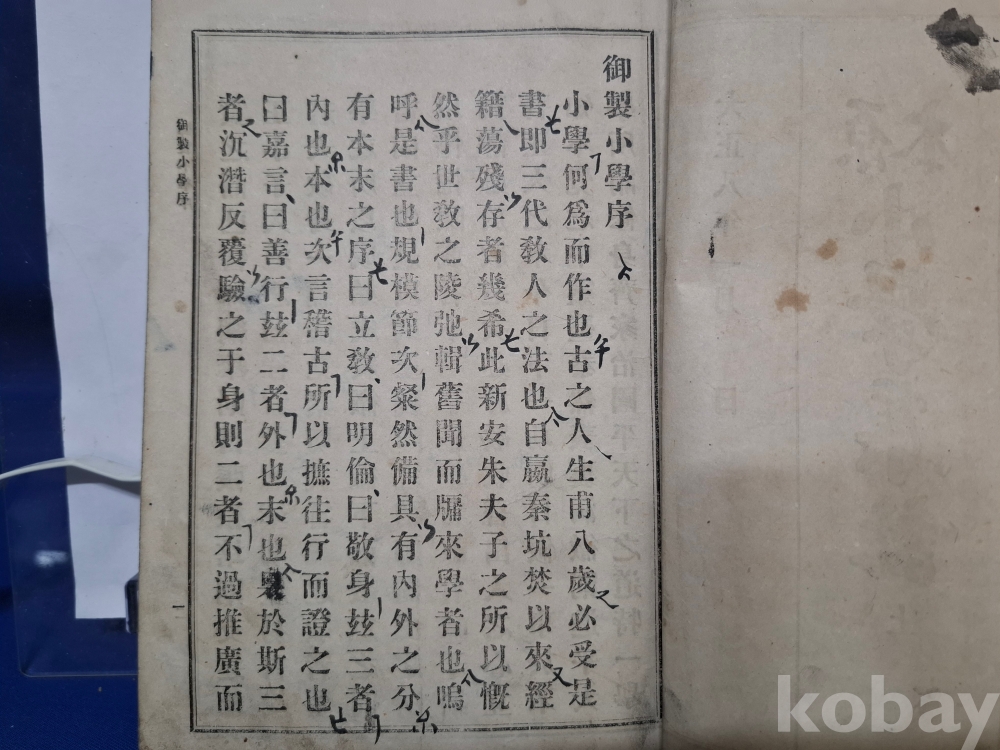 御製小學序
小學何爲而作也古之人生甫八歲必受是
書即三代敎人之法也自嬴秦坑焚以來經
籍蕩殘存者幾希此新安朱夫子之所以慨
然乎世敎之陵弛輯舊聞而牖來學者也嗚
呼是書也規模節次粲然備具有內外之分
有本末之序曰立敎曰明倫曰敬身玆三者
內也本也次言稽古所以摭往行而證之也
曰嘉言曰善行玆二者外也末也 於斯三
者沉潛反覆驗之于身則二者不過推廣而
御製小學序
一
kobay